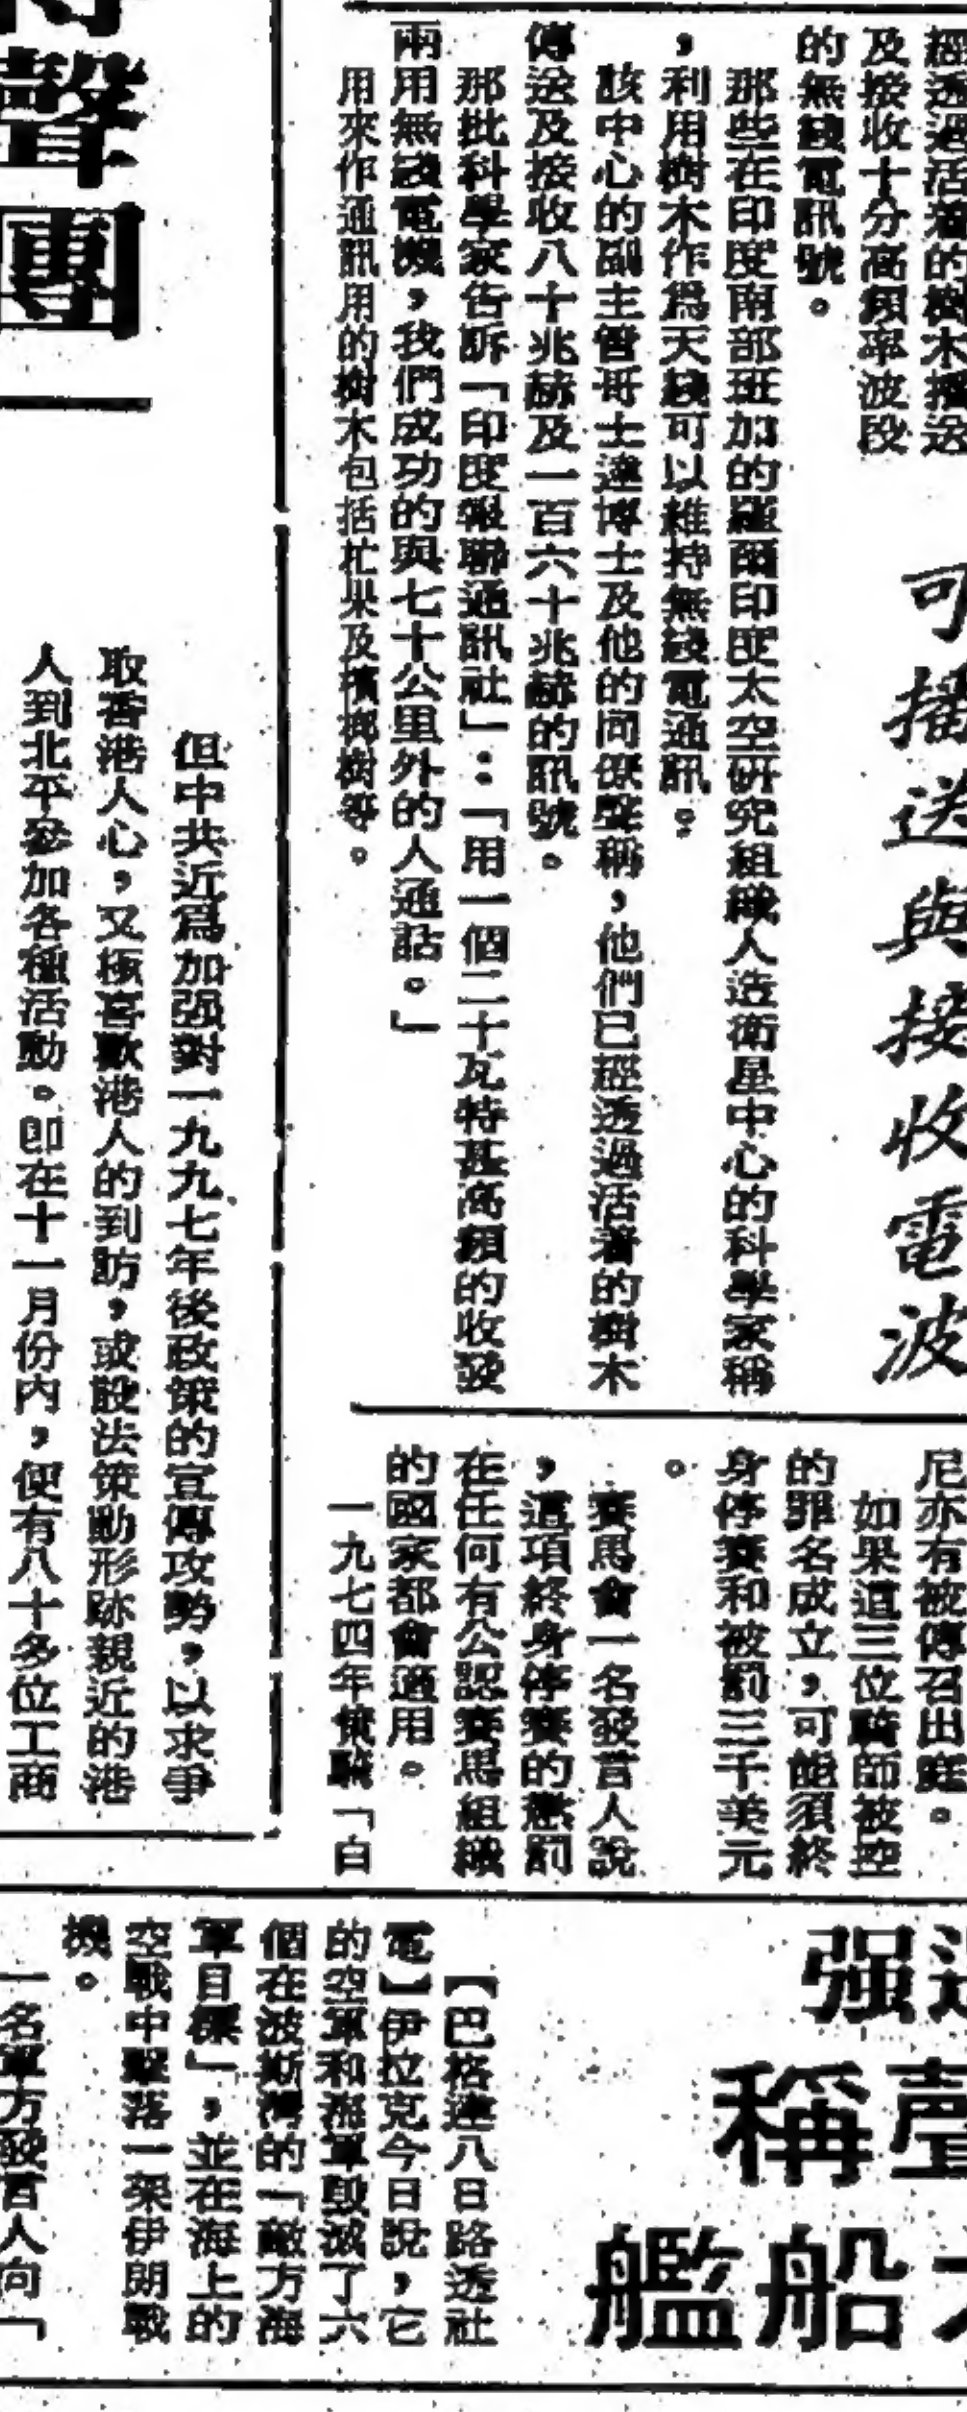 可播送與接收電波
經透過活着的樹木播送
及接收十分高頻率波段
的無綫電訊號。
那些在印度南部班加的羅爾印度太空研究組織人造衛星中心的科學家稱
，利用樹木作爲天綫可以維持無綫電通訊。
該中心的副主管哥士達博士及他的同僚聲稱，他們已經透過活着的樹木
傳送及接收八十兆赫及一百六十兆赫的訊號。
那批科學家告訴「印度報聯通訊社」：「用一個二十瓦特甚高頻的收發
兩用無綫電機，我們成功的與七十公里外的人通話。」
用來作通訊用的樹木包括杧果及檳榔樹等。
聲團
但中共近爲加强對一九九七年後政策的宣傳攻勢，以求爭
取香港人心，又極喜歡港人的到訪，或設法策動形跡親近的港
人到北平參加各種活動。卽在十一月份內，便有八十多位工商
尼亦有被傳召出庭。
如果這三位騎師被控
的罪名成立，可能須終
身停賽和被罰三千美元
。
賽馬會一名發言人說
，這項終身停賽的懲罰
在任何有公認賽馬組織
的國家都會適用。
一九七四年策騎「白
强
稱
艦船
【巴格達八日路透社
電】伊拉克今日說，它
的空軍和海軍毀滅了六
個在波斯灣的「敵方海
軍目標」，並在海上的
空戰中擊落一架伊朗戰
機。
一名軍方發言人向「